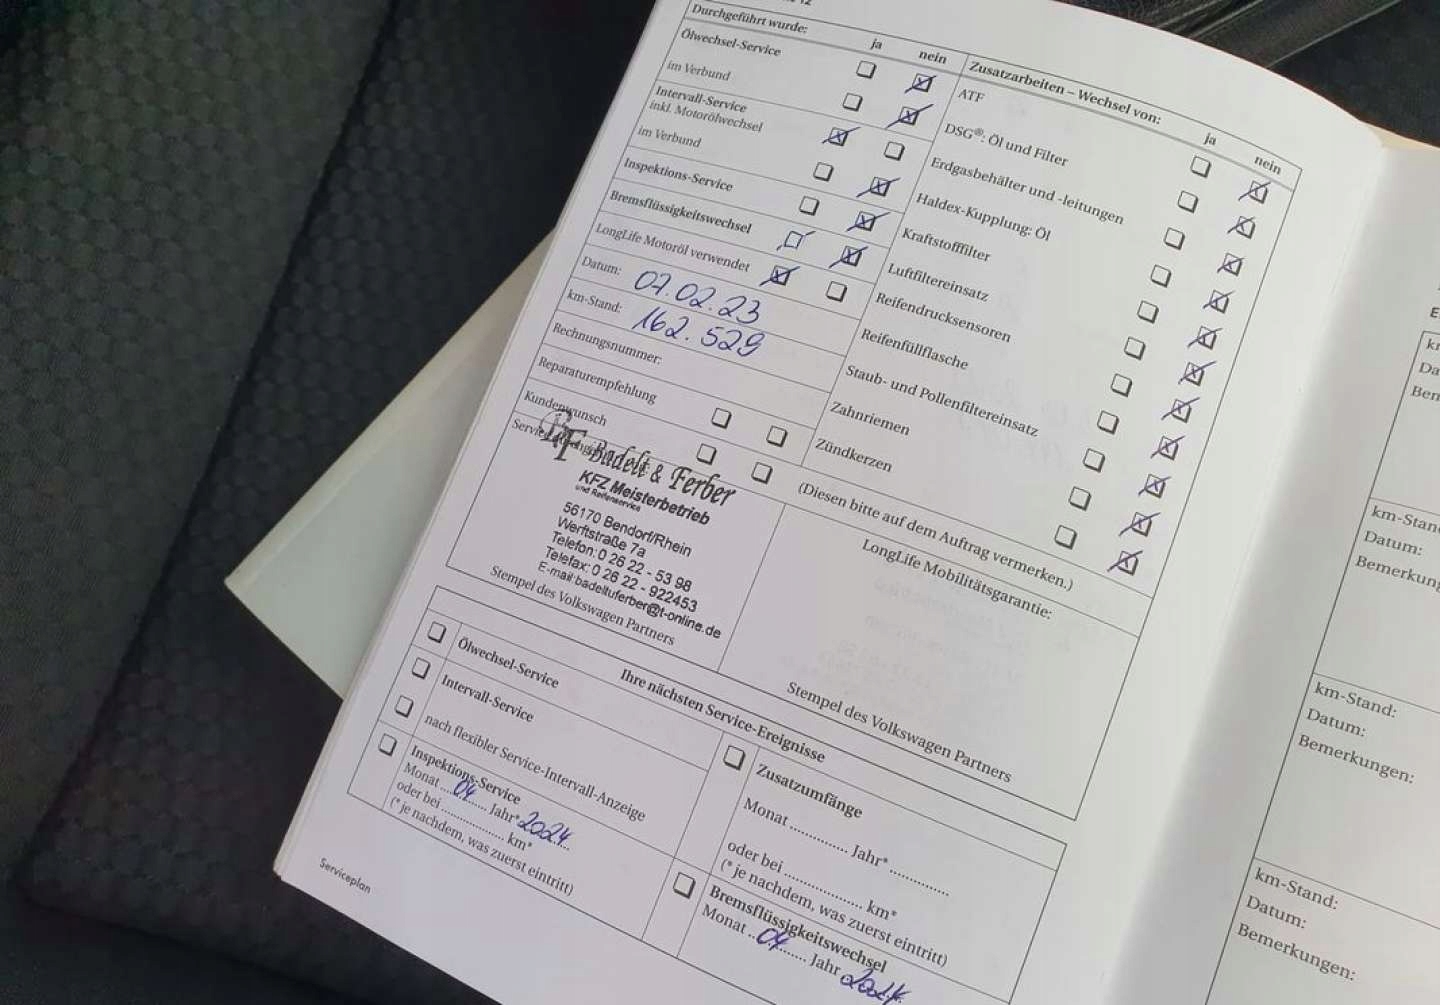 Durchgeführt wurde: ja nein
Ölwechsel-Service
im Verbund
Intervall-Service
inkl. Motorölwechsel
im Verbund
Inspektions-Service
Bremsflüssigkeitswechsel
LongLife Motoröl verwendet
Datum: 07.02.23
km-Stand: 162.529
Rechnungsnummer:
Reparaturempfehlung
Kundenwunsch
BF Badelt & Ferber
KFZ Meisterbetrieb
und Reifenservice
56170 Bendorf/Rhein
Werftstraße 7a
Telefon: 0 26 22 - 53 98
Telefax: 0 26 22 - 922453
E-mail: badeltuferber@t-online.de
Stempel des Volkswagen Partners
Zusatzarbeiten – Wechsel von: ja nein
ATF
DSG®: Öl und Filter
Erdgasbehälter und -leitungen
Haldex-Kupplung: Öl
Kraftstofffilter
Luftfiltereinsatz
Reifendrucksensoren
Reifenfüllflasche
Staub- und Pollenfiltereinsatz
Zahnriemen
Zündkerzen
(Diesen bitte auf dem Auftrag vermerken.)
LongLife Mobilitätsgarantie:
Stempel des Volkswagen Partners
Ihre nächsten Service-Ereignisse
Ölwechsel-Service
Intervall-Service
nach flexibler Service-Intervall-Anzeige
Inspektions-Service
Monat ..04...... Jahr* 2024..
oder bei .................. km*
(* je nachdem, was zuerst eintritt)
Zusatzumfänge
Monat ............... Jahr* ...............
oder bei .................... km*
(* je nachdem, was zuerst eintritt)
Bremsflüssigkeitswechsel
Monat ..04........ Jahr 2024
Serviceplan
km-Stand:
Datum:
km-Stand:
Datum:
Bemerkungen:
km-Stand:
Datum:
Bemerkungen: